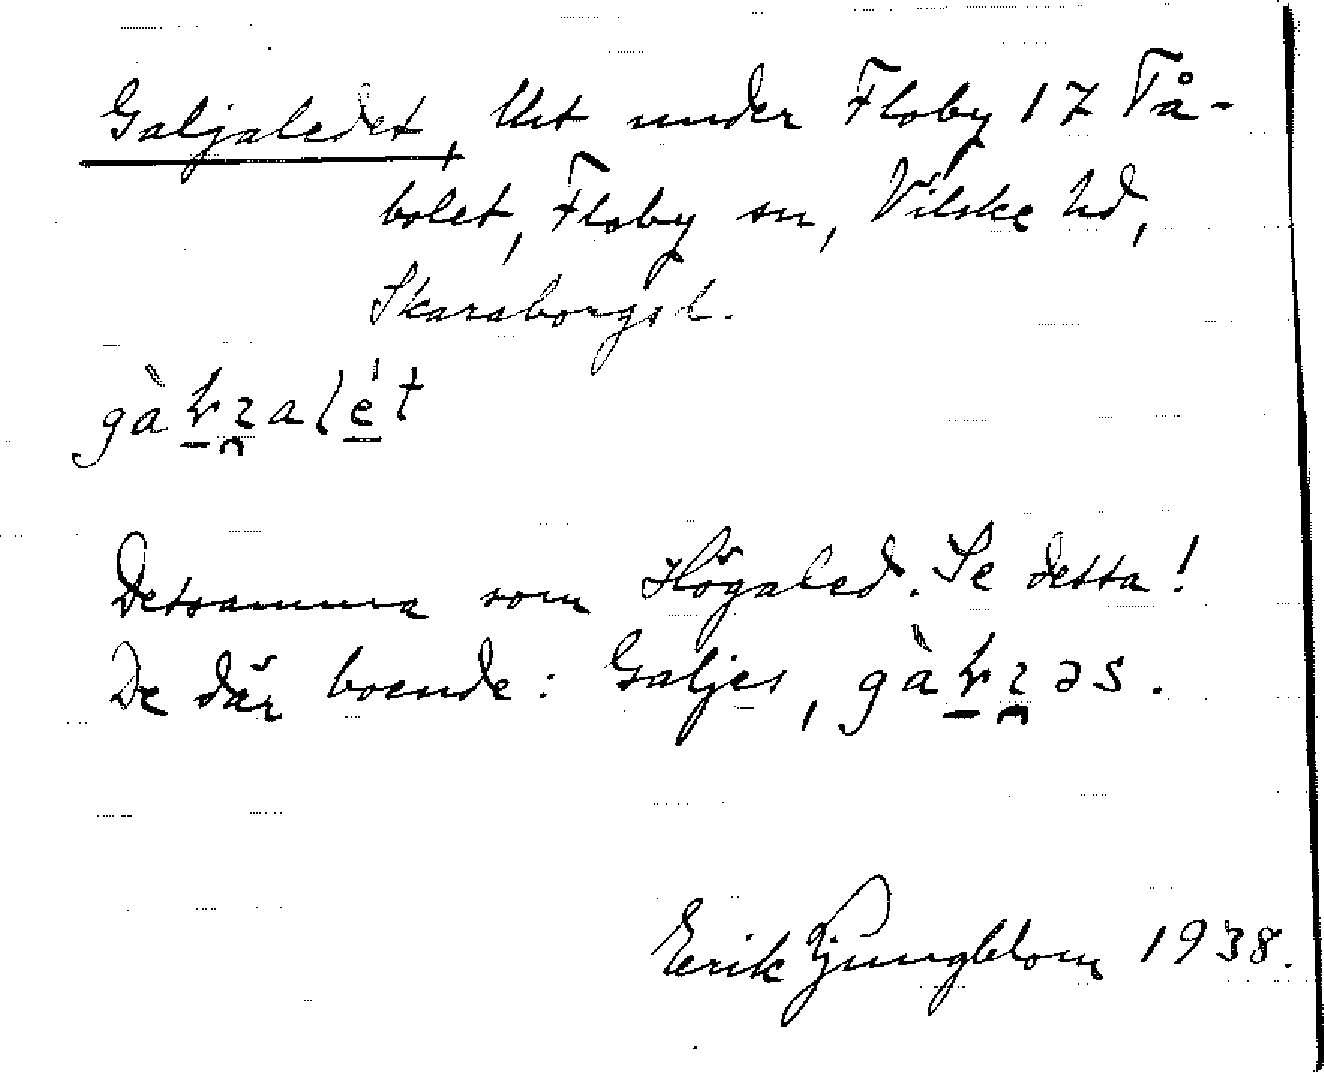 Galjaledet, Unt under Floby 17 Få-
bolet, Floby sn, Vilske hd,
Skaraborgs l.
Detsamma som Högaled. Se detta!
De där boende: Galjes,
Erik Ljungblom 1938.